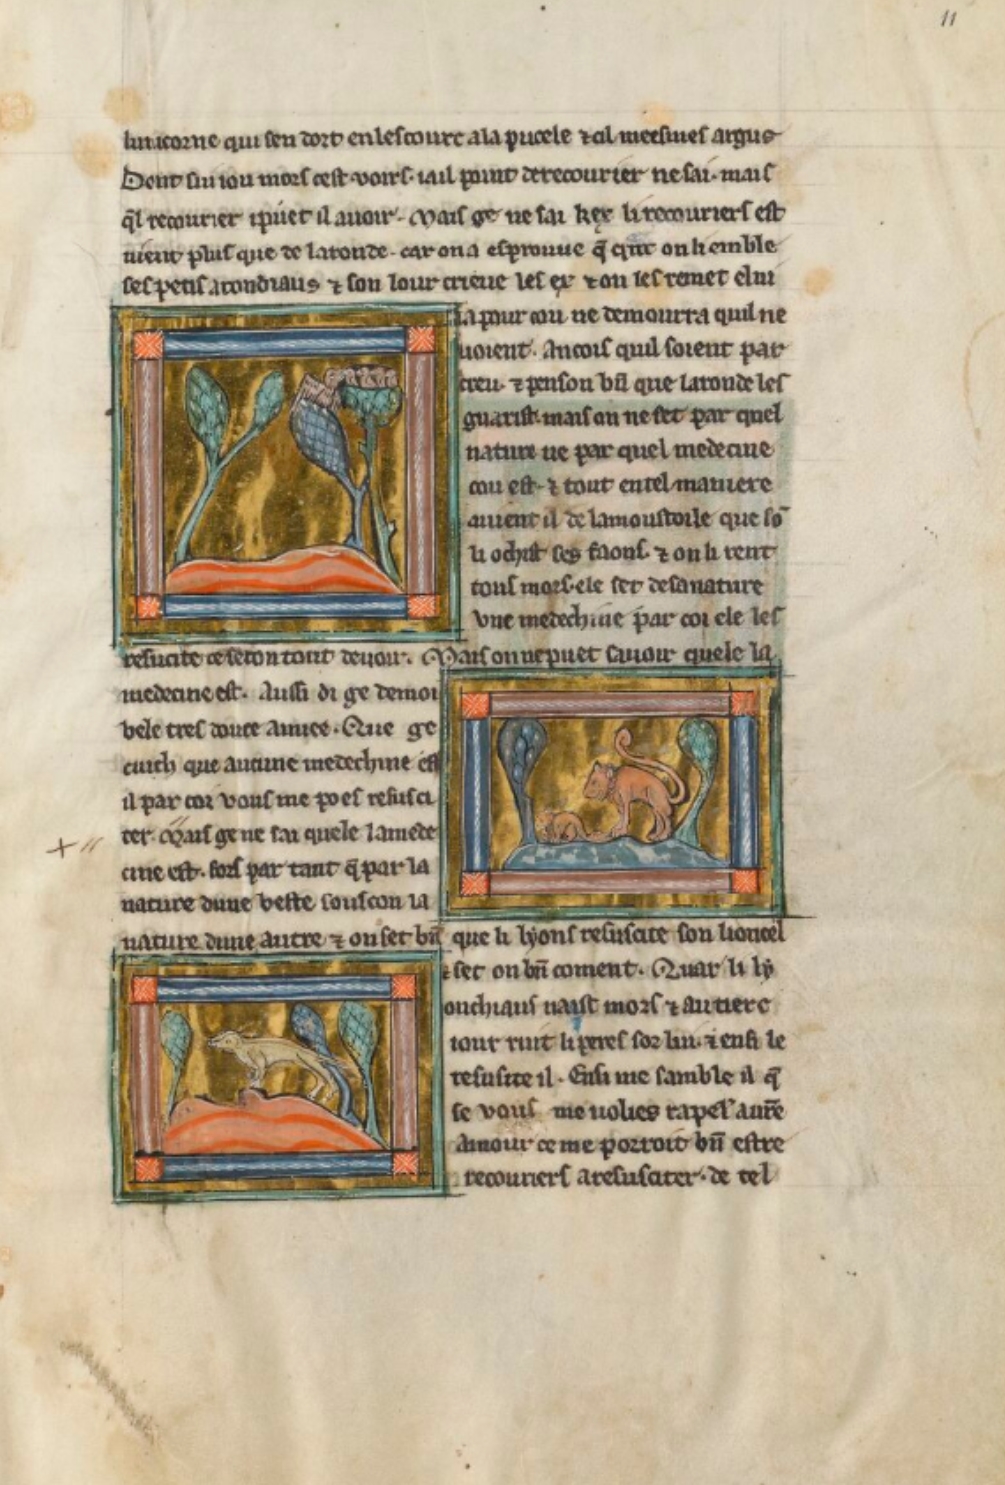 11
lunicorne qui sen dort en lescourc a la pucele ⁊ al meesmes argus
Dont sui iou mors cest voirs· iail point de recourier ne sai· mais
q̄l recourier ipuet il auoir· Mais ge ne sai kex li recouriers est
nient plus que de laronde· car on a esprouue q̄ qn̄t on li emble
ses petis arondiaus ⁊ son lour crieue les ex ⁊ on les remet el ni
ia pour cou ne demourra quil ne
uoient· Ancois quil soient par
creu· ⁊ penson bn̄ que laronde les
guarist· mais on ne set par quel
nature ne par quel medecine
cou est· ⁊ tout en tel maniere
auient il de la moustoile que sō
li ochist ses faons· ⁊ on li rent
tous mors· ele set de sa nature
vne medechine par coi ele les
resucite ce seton tout de uoir· Mais on ne puet sauoir quele la
medecine est· Aussi di ge de moi
bele tres douce amiee· Que ge
cuich que aucune medechine est
il par coi vous me poes resusci
ter· Mais ge ne sai quele la mede
cine est· fors par tant q̄ par la
nature dune beste souscon la
nature dune autre ⁊ on set bn̄ que li lyons resuscite son lioncel
⁊ set on bn̄ coment· Quar li ly
onchiaus naist mors ⁊ au tierc
iour ruit li peres sor lui· ⁊ ensi le
resuscite il· Ensi me samble il q̄
se vous me uolies rapel' a urē
amour ce me porroit bn̄ estre
recouriers a resusciter· de tel